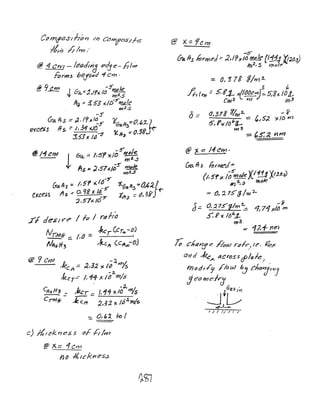 Composition in composite
thin film:
@ 4 cm - leading edge - film
forms beyond 4 cm.
@ 9 cm ↓ Ga = 2.19x10^-5 mole/m²·s
As = 3.53 x10^-5 mole/m²·s
GaAs = 2.19x10^-5
excess As = 1.34x10^-5
3.53x10^-5
X_GaAs = 0.62
X_As = 0.38
@ 14 cm ↓ Ga = 1.59x10^-5 mole/m²·s
As = 2.57x10^-5 mole/m²·s
GaAs = 1.59x10^-5
excess As = 0.98x10^-5
2.57x10^-5
X_GaAs = 0.62
X_As = 0.38
If desire 1 to 1 ratio
N_TMG / N_AsH3 = 1.0 = k_CT (C_T∞-0) / k_CA (C_A∞-0)
@ 9 cm k_CA = 2.32 x 10^-2 m/s
k_CT = 1.44 x10^-2 m/s
C_AsH3 / C_TMG = k_CT / k_CA = 1.44 x10^-2 / 2.32 x 10^-2 m/s
= 0.62 to 1
c) thickness of film
@ x = 4 cm
no thickness
@ x = 9 cm
GaAs formed = 2.19x10^-5 mole/m²·s (144 g/mole)(120 s)
= 0.378 g/m²
ρ_film = 5.8 g/cm³ x (100 cm/m)³ = 5.8x10^6 g/m³
δ = 0.378 g/m² / 5.8x10^6 g/m³ = 6.52 x10^-8 m
= 65.2 nm
@ x = 14 cm.
GaAs formed =
(1.59x10^-5 mole/m²·s)(144 g/mole)(120 s)
= 0.275 g/m²
δ = 0.275 g/m² / 5.8x10^6 g/m³ = 4.74x10^-8 m
= 47.4 nm
To change flow rate, i.e. Rex
and k_CA across plate,
modify flow by changing
geometry